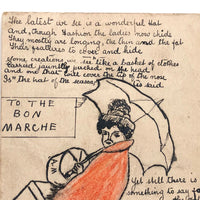 The latest we see is a wonderful Hat
And, though Fashion the Ladies now chide
They mostly are longing, the thin and the fat
Their features to cover and hide
Some creations we see like a basket of clothes
Carried jauntily perched on the head
And me that will cover the tip of the nose
Is "the hat of the season" tis said
TO THE
BON
MARCHE
Yet still there is
something to say fo